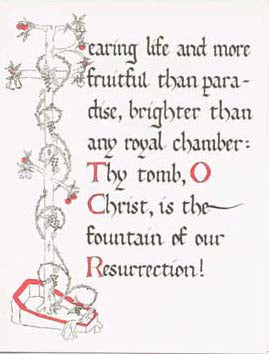 Bearing life and more
fruitful than para-
dise, brighter than
any royal chamber:
Thy tomb, O
Christ, is the
fountain of our
Resurrection!